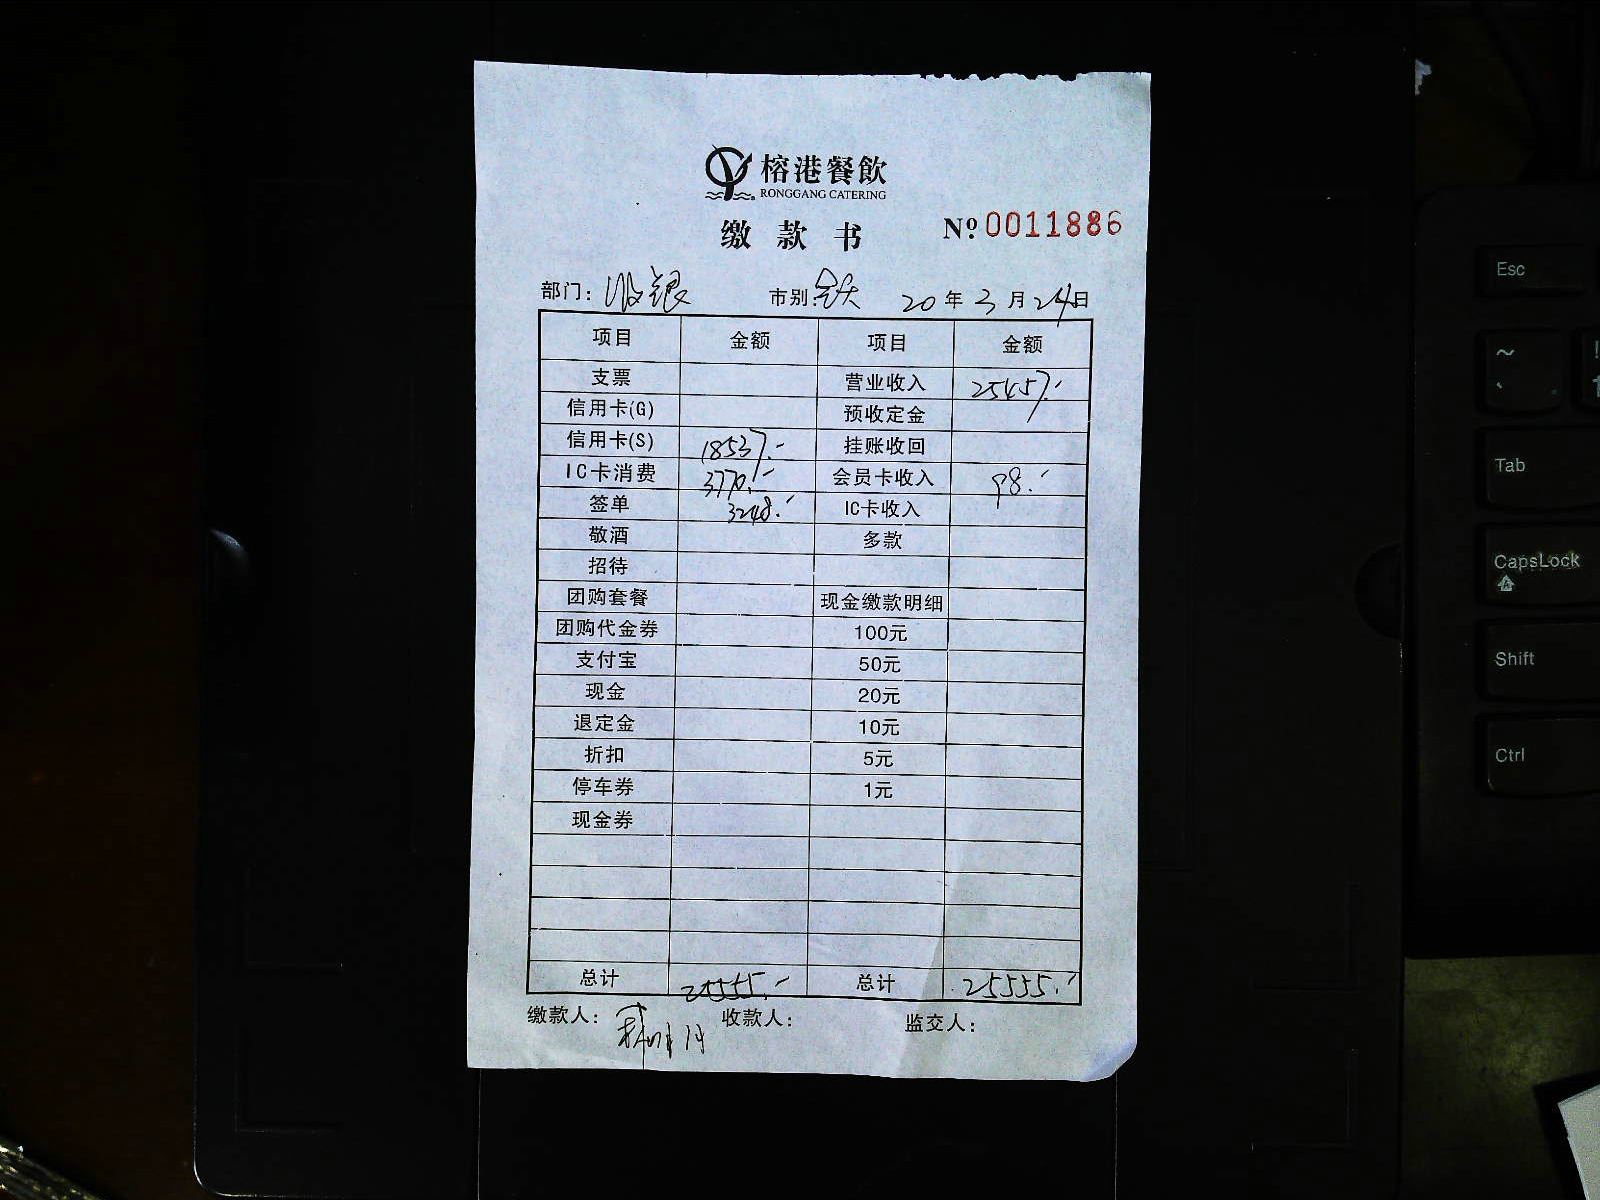 榕港餐飲
RONGGANG CATERING
缴款书 Nº 0011886
部门: 收银 市别: 全天 20年3月24日
项目 金额 项目 金额
支票 营业收入 25457.-
信用卡(G) 预收定金
信用卡(S) 18537.- 挂账收回
IC卡消费 3770.- 会员卡收入 98.-
签单 3248.- IC卡收入
敬酒 多款
招待
团购套餐 现金缴款明细
团购代金券 100元
支付宝 50元
现金 20元
退定金 10元
折扣 5元
停车券 1元
现金券
总计 25555.- 总计 25555.-
缴款人: 收款人: 监交人:
Esc
~
Tab
CapsLock
Shift
Ctrl